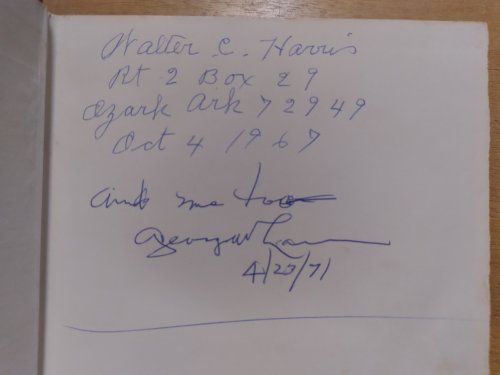 Walter C. Harris
Rt 2 Box 29
Ozark Ark 72949
Oct 4 1967
and me too
4/25/71